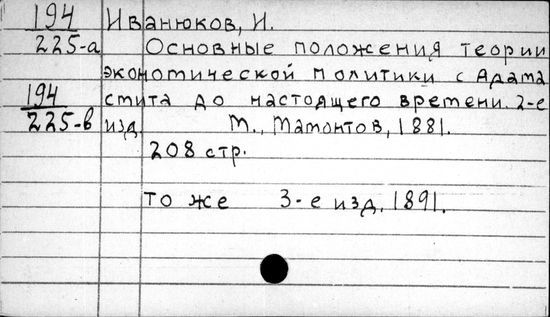 194 Иванюков, И.
225-а Основные положения теории
экономической политики с Адама
194 Смита до настоящего времени. 2-е
225-в изд. М., Мамонтов, 1881.
208 стр.
То же 3-е изд. 1891.